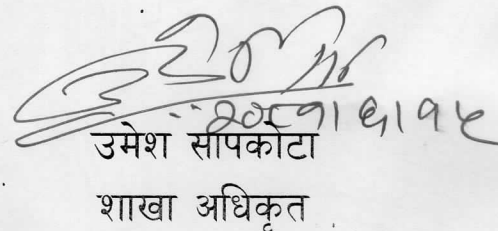 २०८१।६।१५
उमेश सापकोटा
शाखा अधिकृत